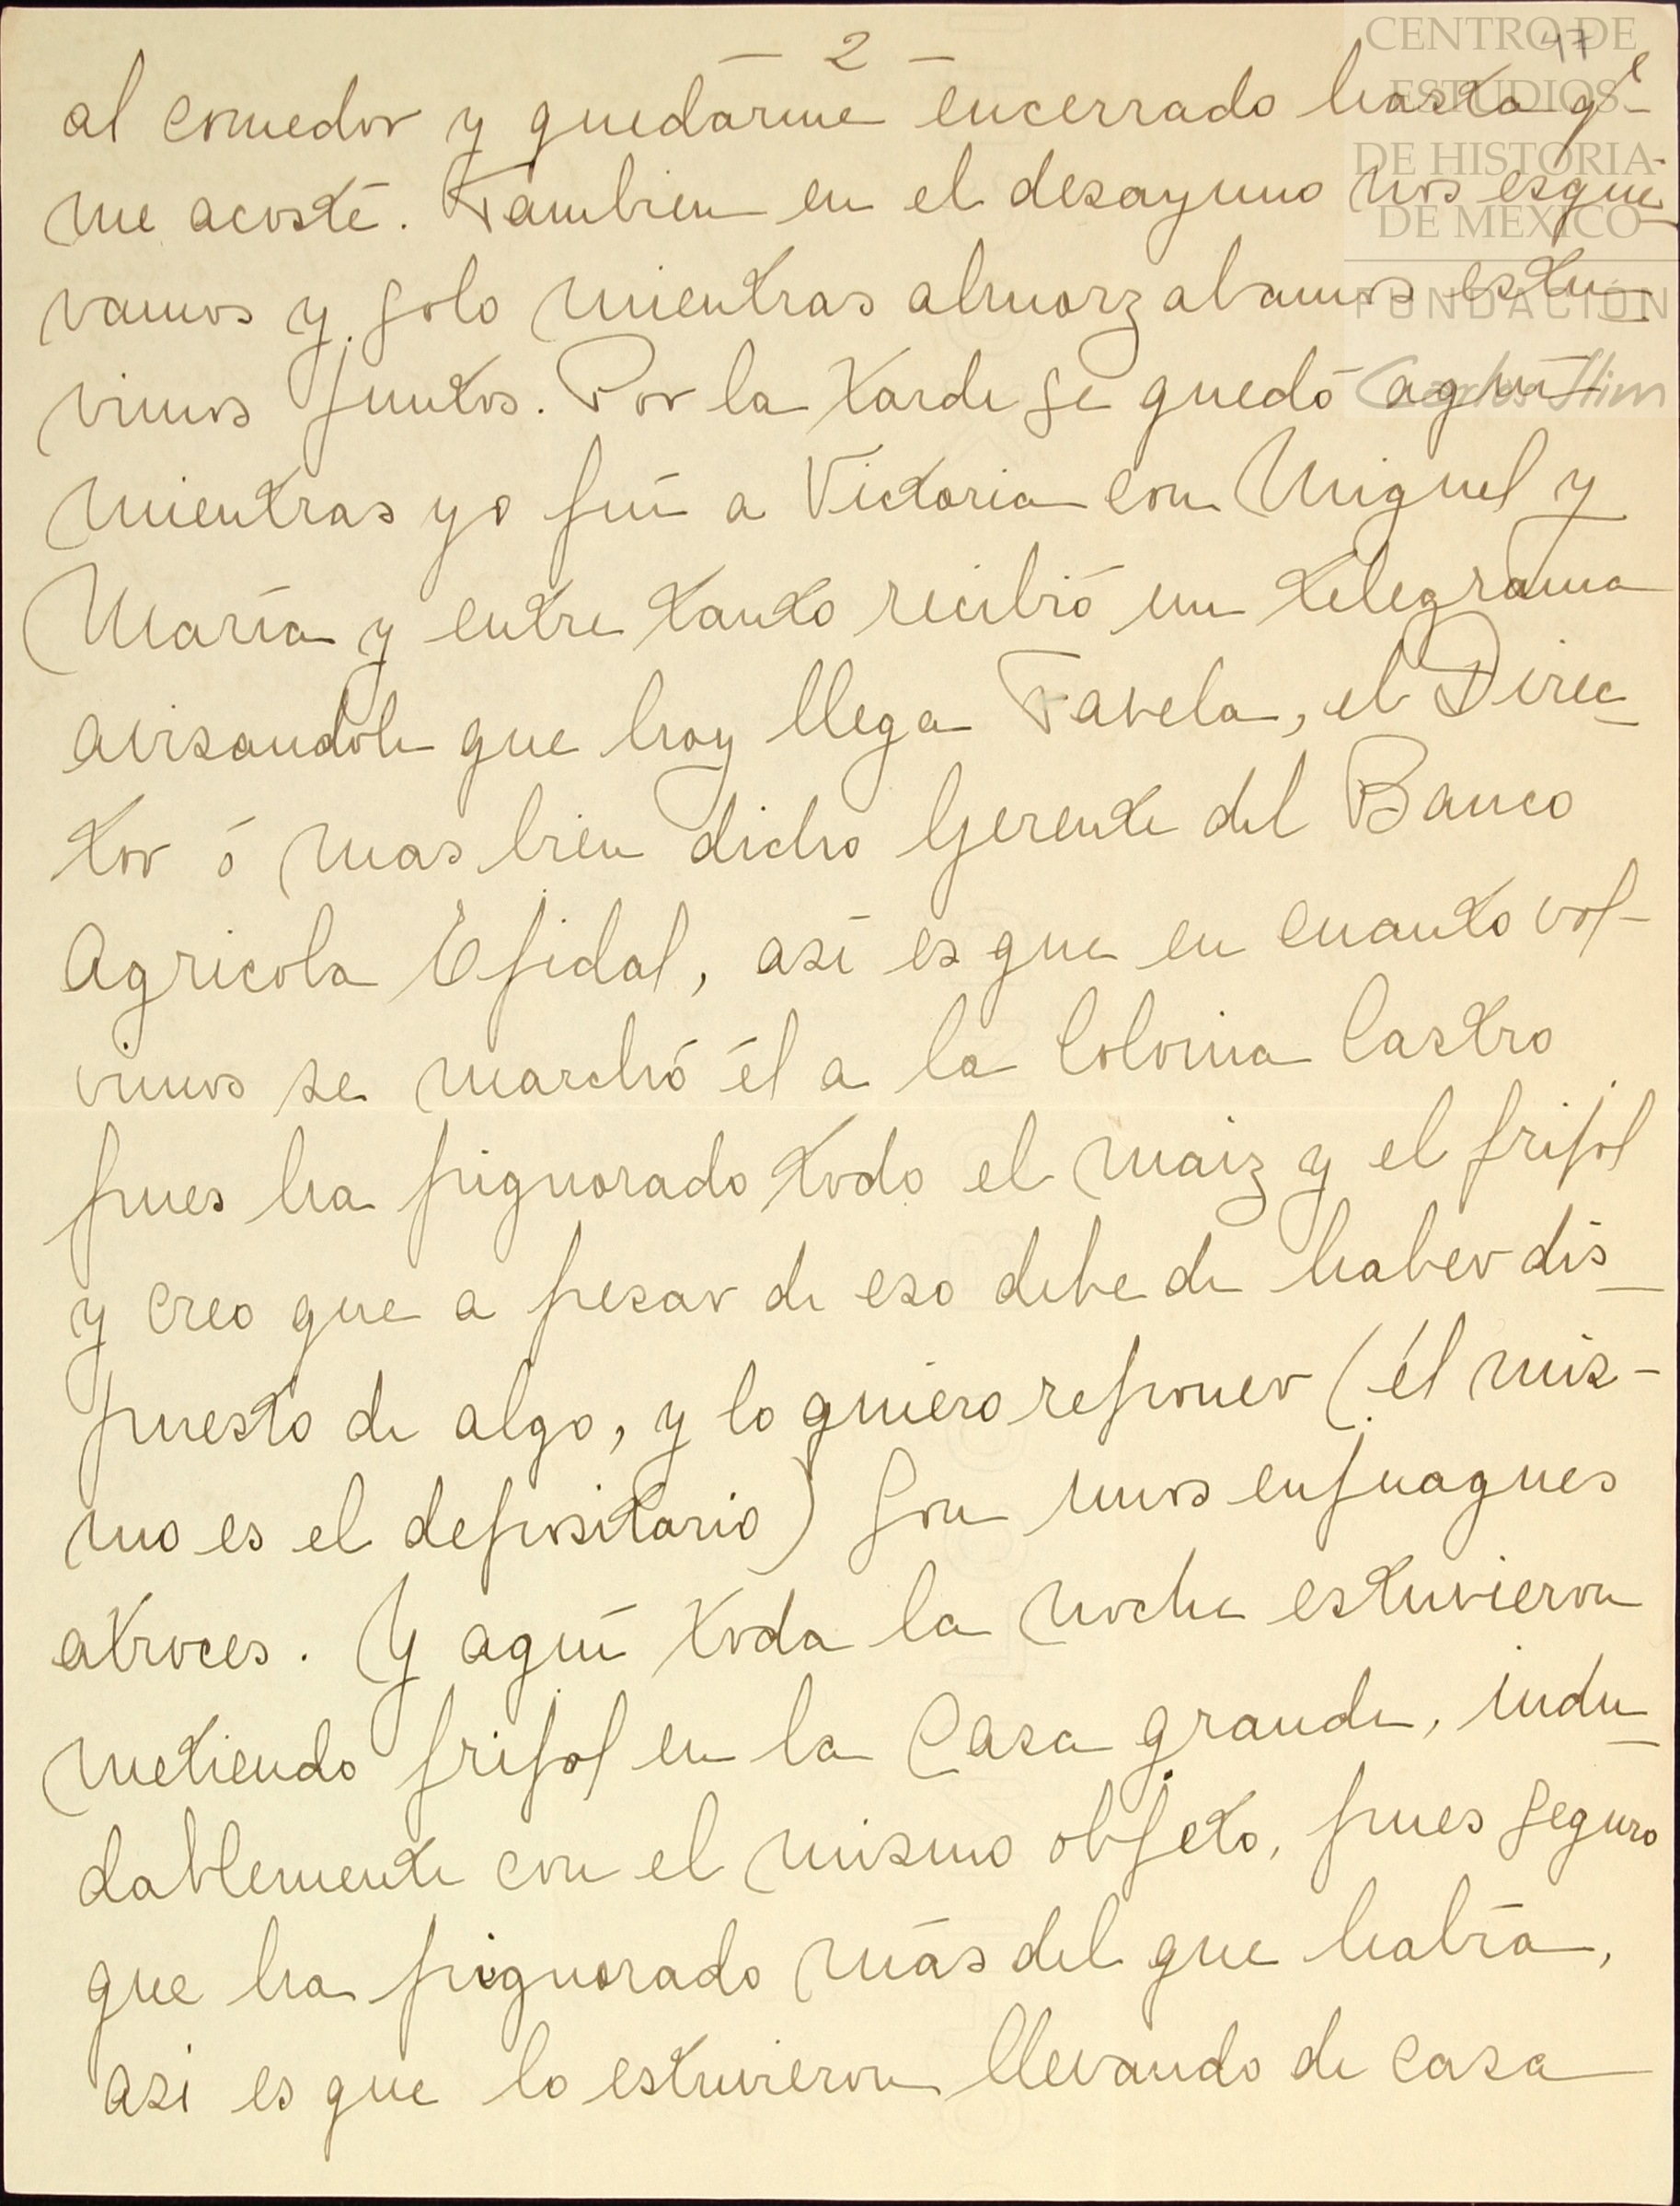 - 2 -
47
CENTRO DE
ESTUDIOS
DE HISTORIA
DE MEXICO
FUNDACIÓN
Carlos Slim
al comedor y quedarme encerrado hasta qe
me acosté. Tambien en el desayuno nos esque-
vamos y solo mientras almorzabamos estu-
vimos juntos. Por la tarde se quedó aquí
mientras yo fuí a Victoria con Miguel y
María y entre tanto recibió un telegrama
avisandole que hoy llega Favela, el Direc-
tor ó mas bien dicho Gerente del Banco
Agricola Ejidal, asi es que en cuanto vol-
vimos se marchó él a la Colonia Castro
pues ha pignorado todo el maiz y el frijol
y creo que a pesar de eso debe de haber dis-
puesto de algo, y lo quiero reponer (él mis-
mo es el depositario) Son unos enjuagues
atroces. Y aquí toda la noche estuvieron
metiendo frijol en la Casa grande, indu-
dablemente con el mismo objeto, pues seguro
que ha pignorado más del que había,
asi es que lo estuvieron llevando de casa